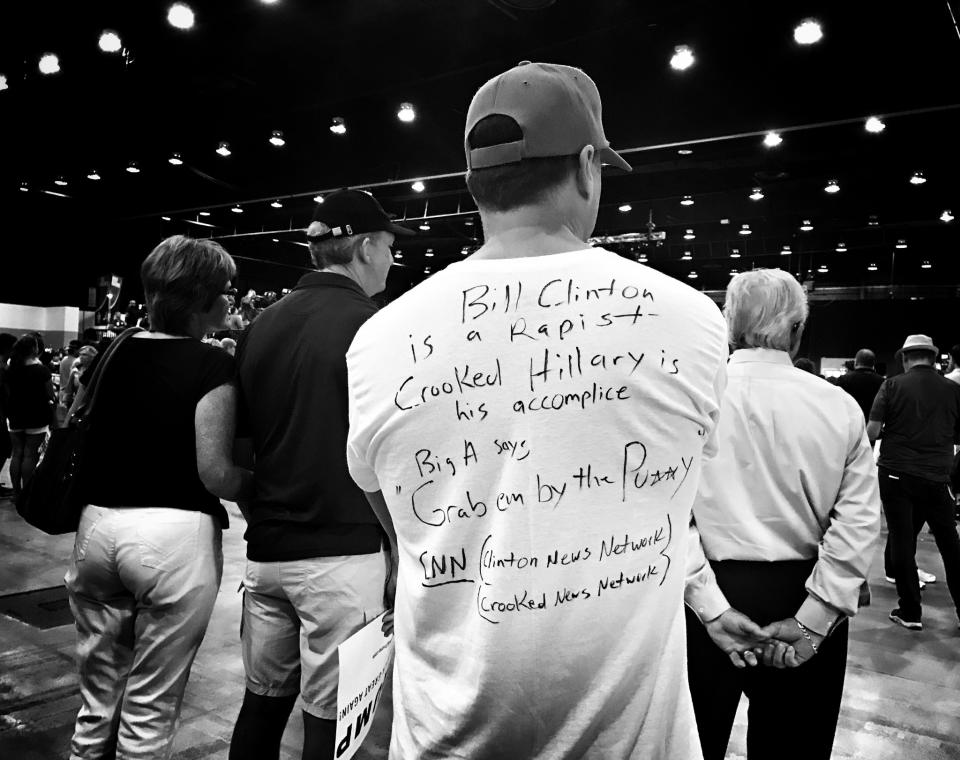 Bill Clinton
is a Rapist
Crooked Hillary is
his accomplice
Big A says
"Grab em by the Pu☆☆y"
CNN (Clinton News Network)
(Crooked News Network)
UMP
GREAT AGAIN!